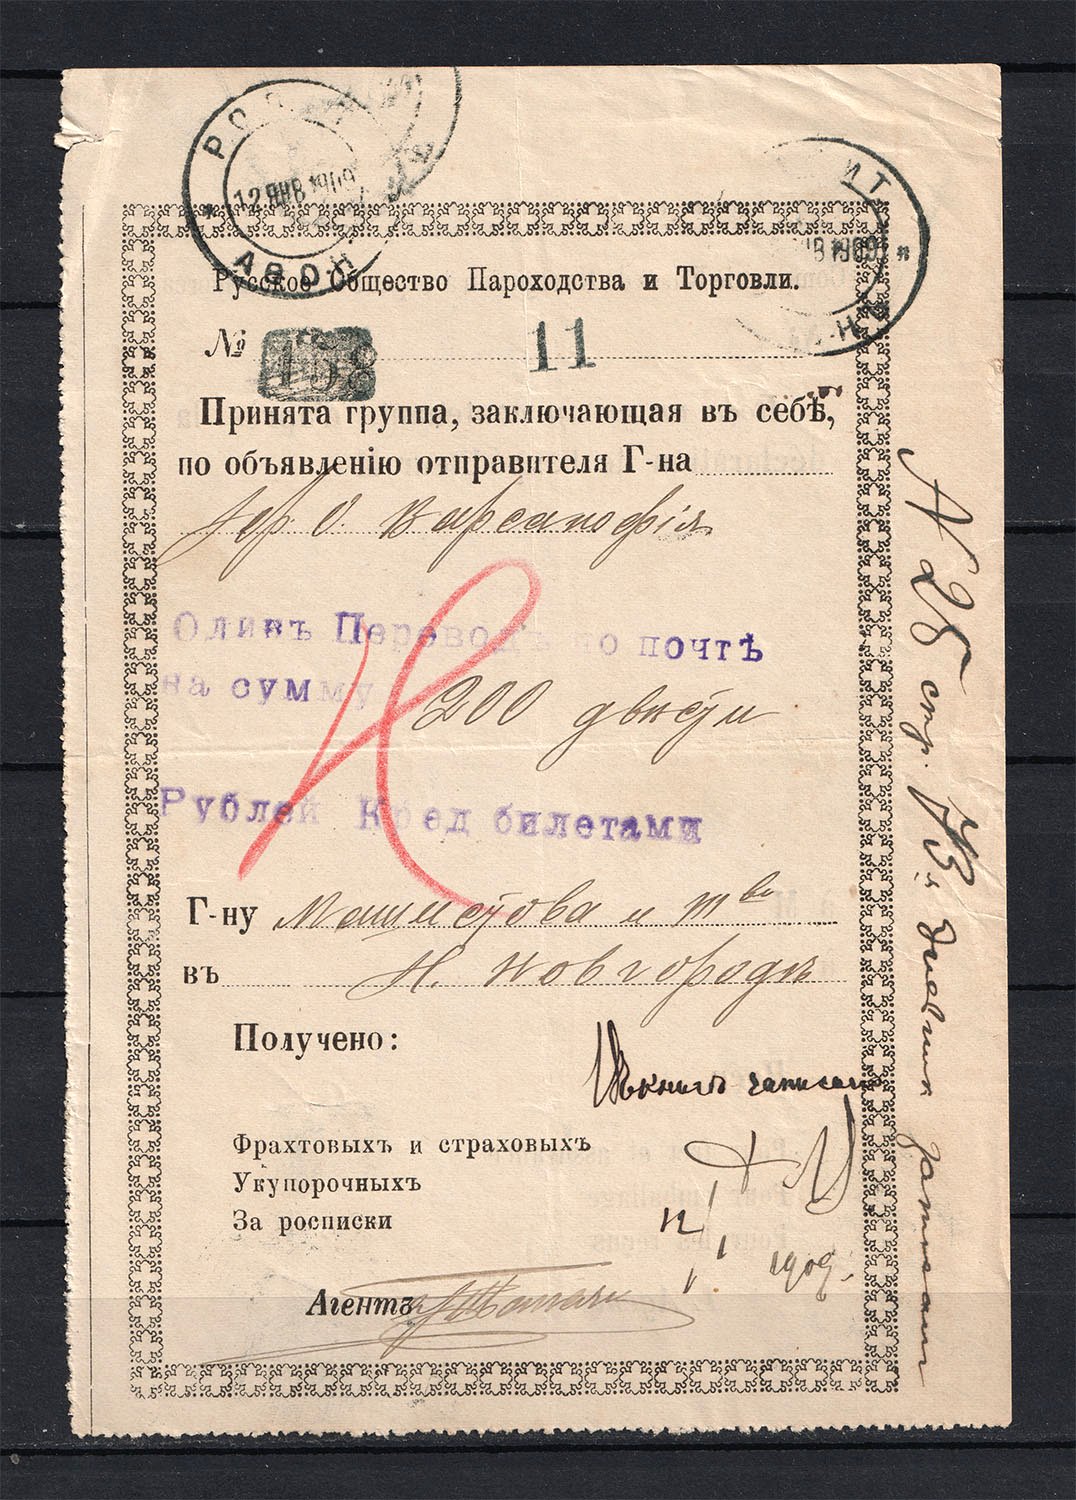 РО
12 ЯНВ 1909
АѲОН
ИТ
В 1909
Русское Общество Пароходства и Торговли.
№ 158 11
Принята группа, заключающая въ себѣ,
по объявленію отправителя Г-на
Іер. О. Варсанофія
Одинъ Переводъ по почтѣ
на сумму 200 двѣсти
Рублей Кред билетами
Г-ну и Т во
въ Н. Новгородѣ
Получено:
Въ книгѣ записано
Фрахтовыхъ и страховыхъ
Укупорочныхъ
За росписки
12/1 1909.
Агентъ
№ 25 стр. 73